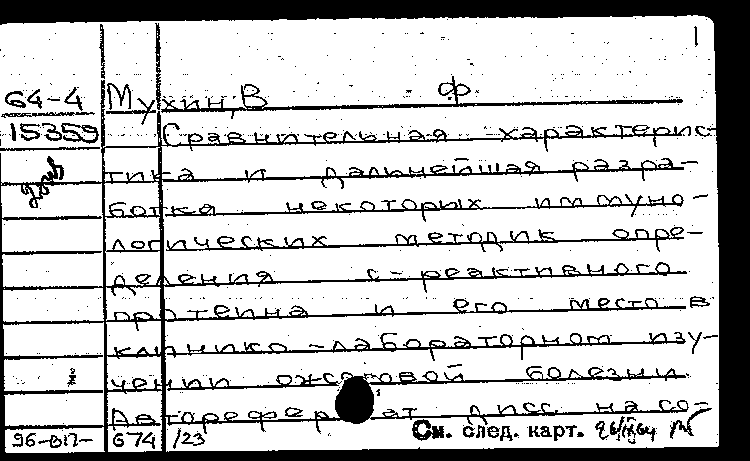 1
64-4 Мухин, В. Ф.
15359 Сравнительная характерис-
тика и дальнейшая разра-
ботка некоторых иммуно-
логических методик опре-
деления с-реактивного
протеина и его место в
клинико-лабораторном изу-
чении ожоговой болезни.
Автореферат дисс на со-
96-ВП- 674/23 См. след. карт.